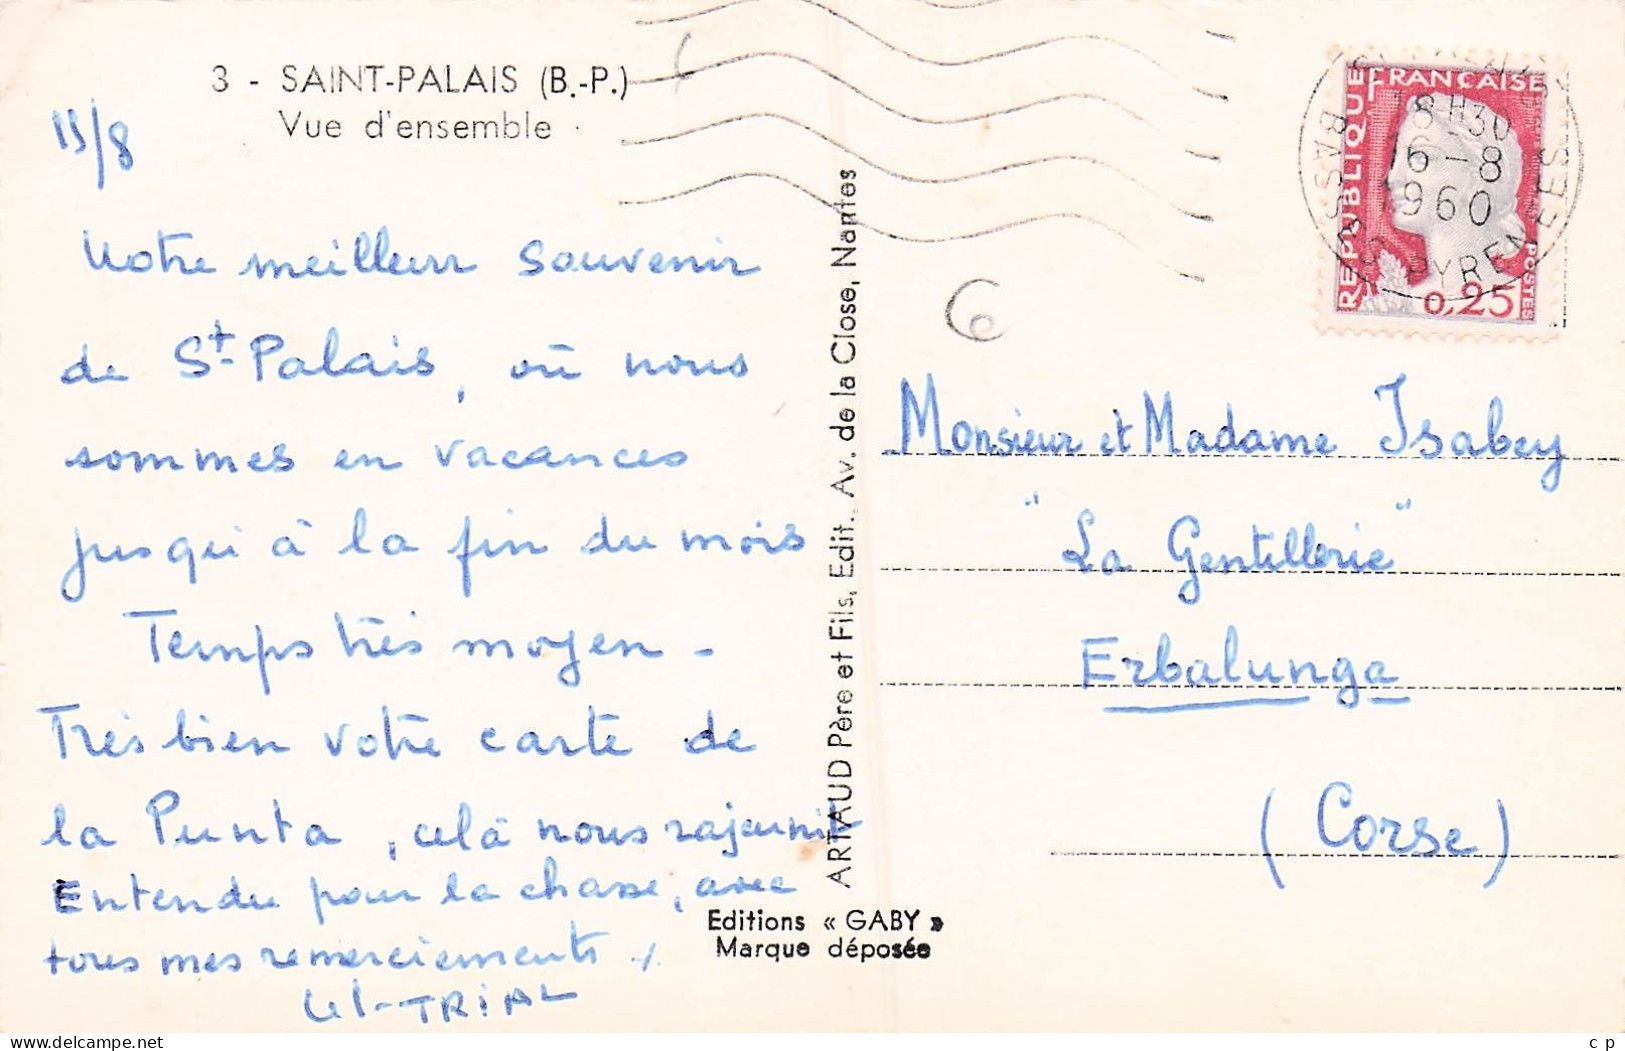 3 - SAINT-PALAIS (B.-P.)
Vue d'ensemble
15/8
Notre meilleur souvenir
de St-Palais, où nous
sommes en vacances
jusqu'à la fin du mois
Temps très moyen -
Très bien votre carte de
la Punta, celà nous rajeunit
Entendu pour la chasse, avec
tous mes remerciements
TRIAL
ARTAUD Père et Fils, Edit. Av. de la Close, Nantes
Editions « GABY »
Marque déposée
REPUBLIQUE FRANÇAISE
POSTES
0,25
18 H 30
16 - 8
1960
BASSES PYRENEES
6
Monsieur et Madame Isabey
"La Gentillerie"
Erbalunga
(Corse)
delcampe.net
c p